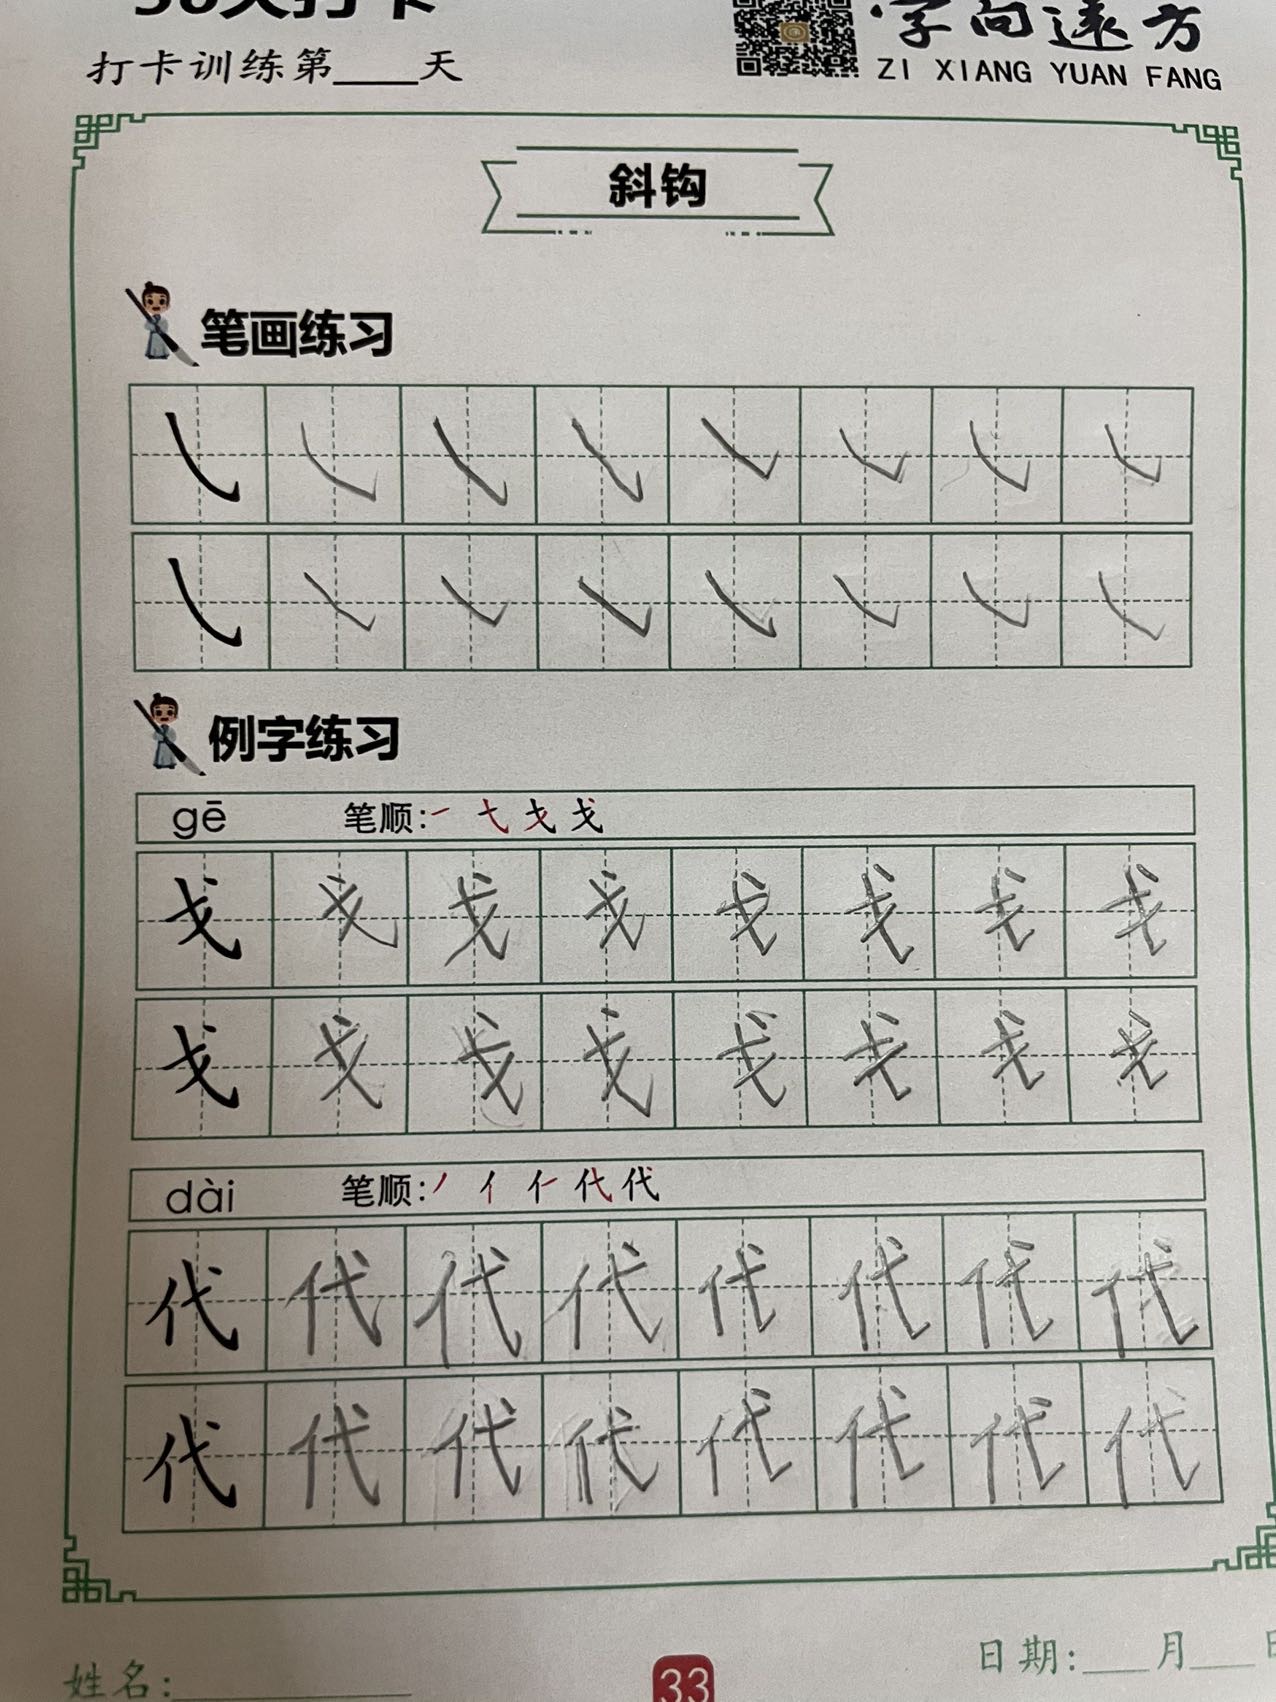 30天打卡
打卡训练第____天
字向远方
ZI XIANG YUAN FANG
斜钩
笔画练习
㇂ ㇂ ㇂ ㇂ ㇂ ㇂ ㇂ ㇂
㇂ ㇂ ㇂ ㇂ ㇂ ㇂ ㇂ ㇂
例字练习
gē 笔顺:㇀ 七 戈 戈
戈 戈 戈 戈 戈 戈 戈 戈
戈 戈 戈 戈 戈 戈 戈 戈
dài 笔顺:丿 亻 代 代
代 代 代 代 代 代 代 代
代 代 代 代 代 代 代 代
姓名:
33
日期:___月___日